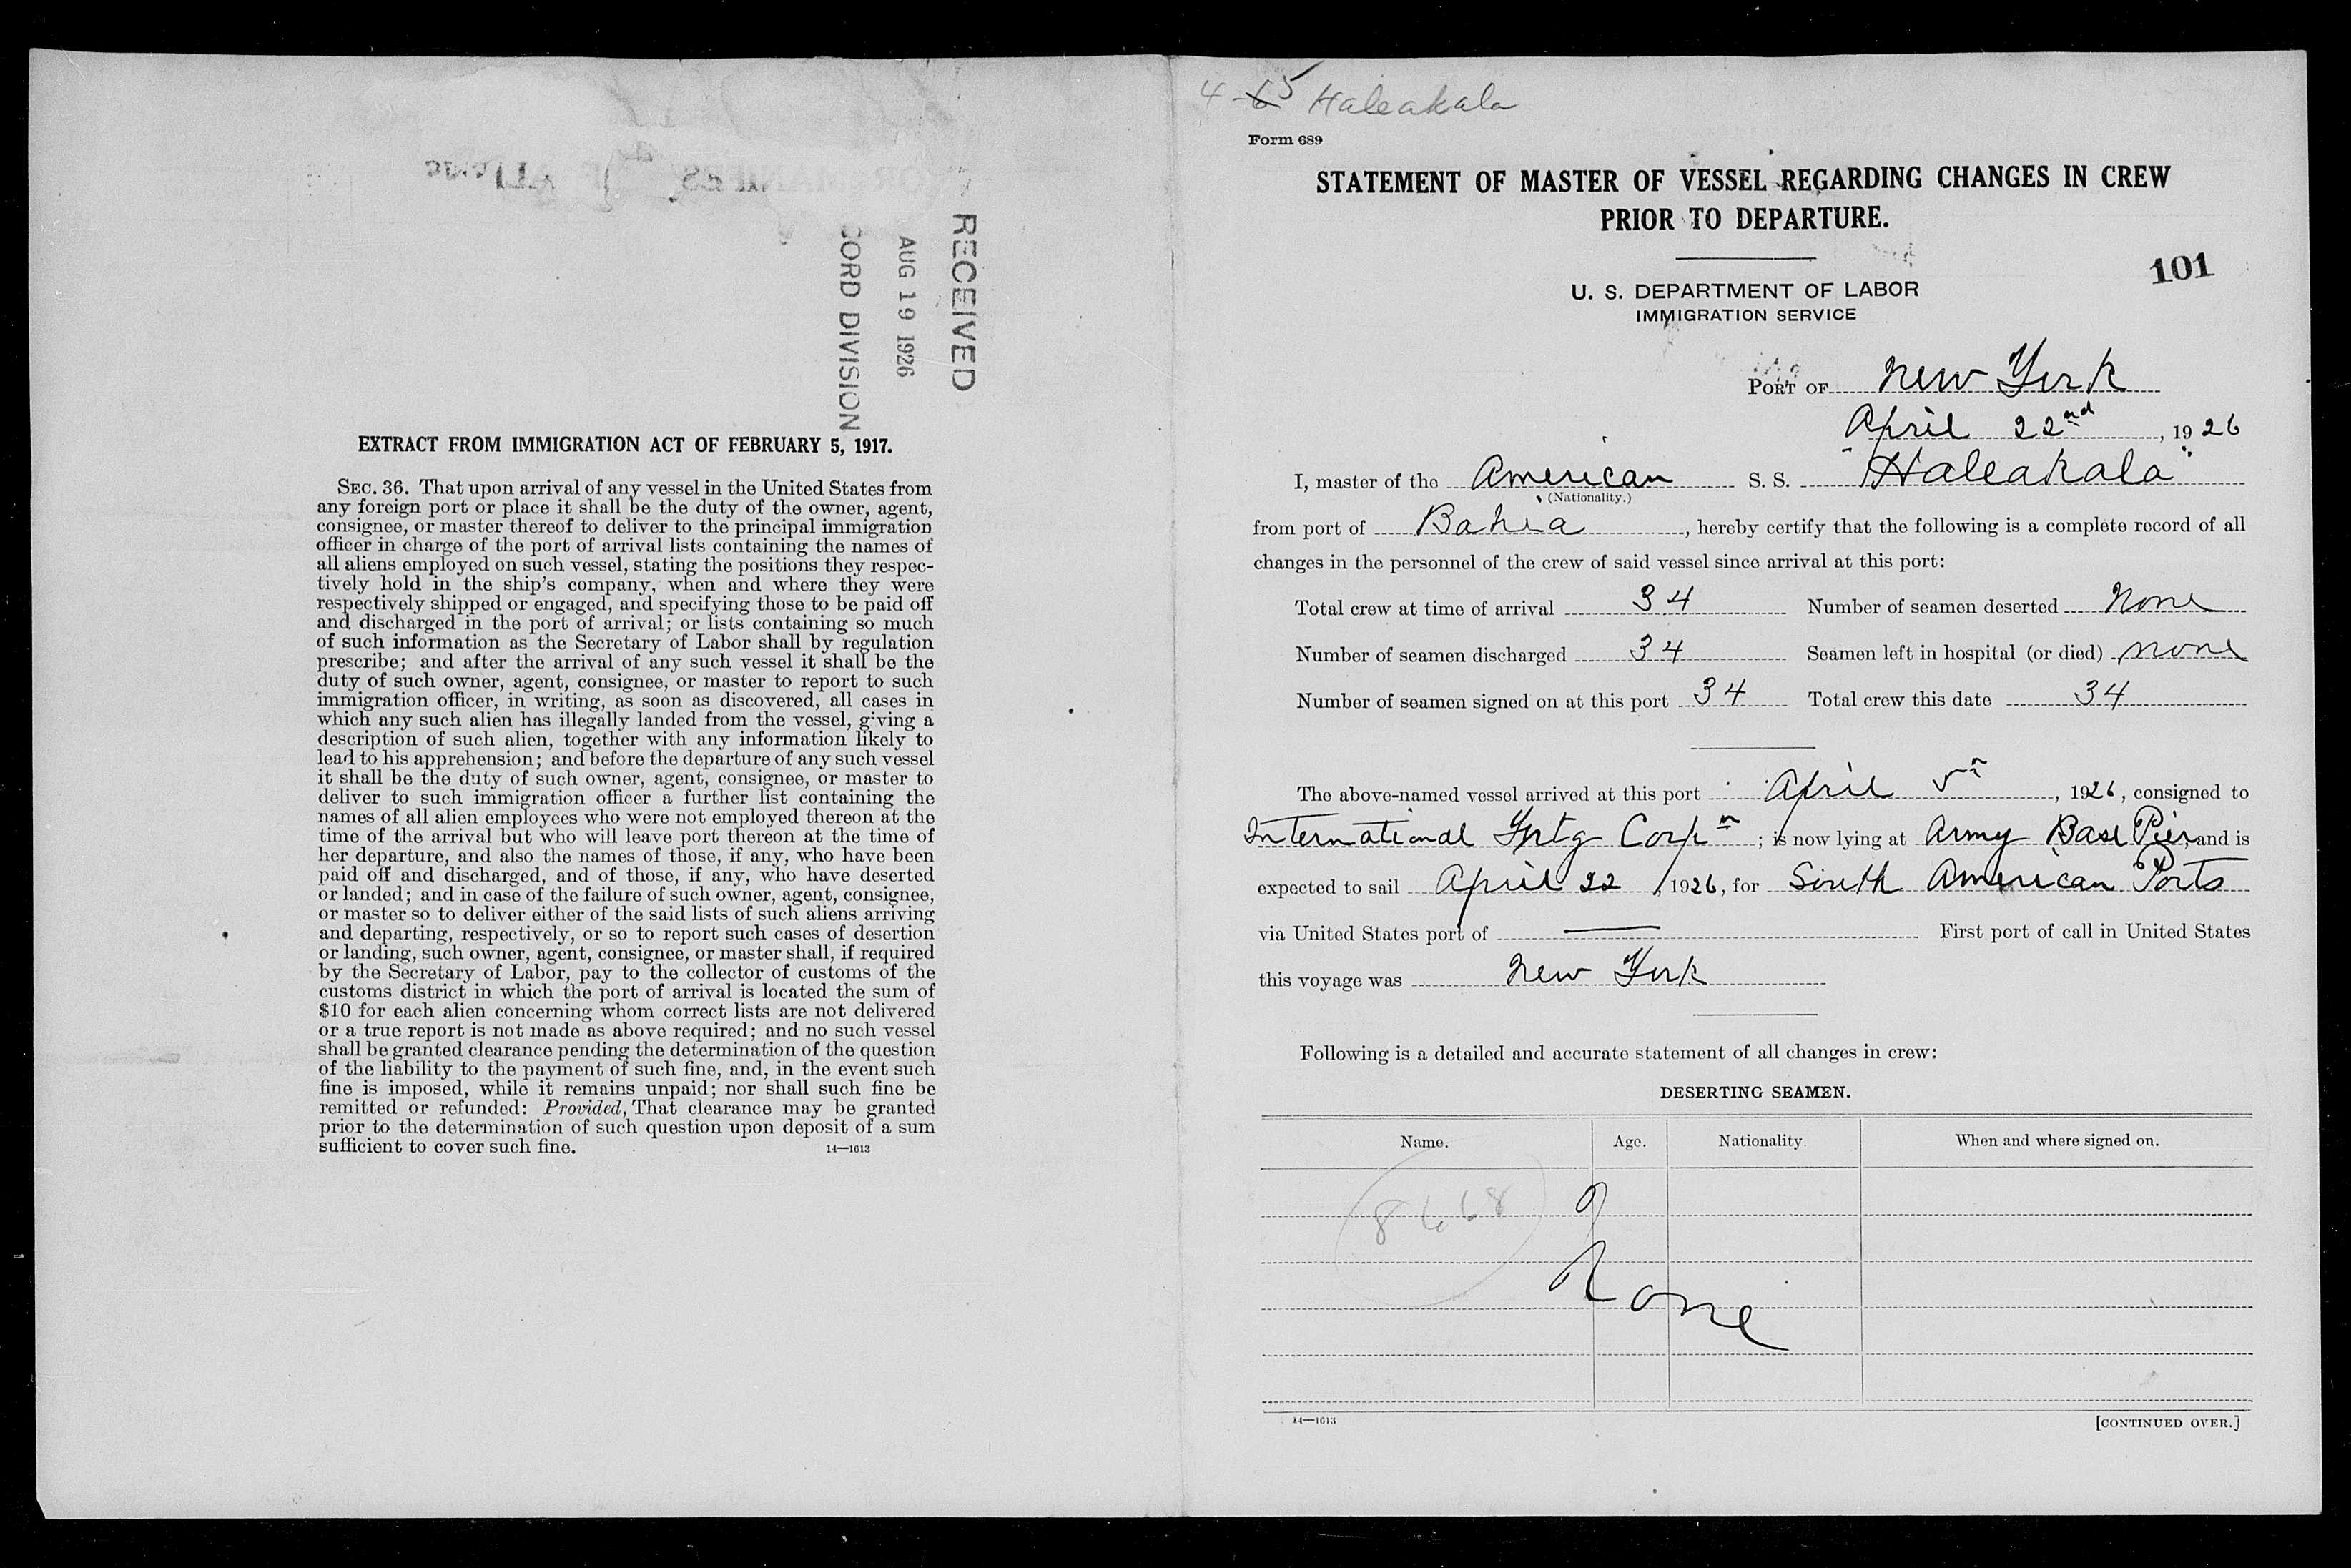 RECEIVED
AUG 19 1926
CORD DIVISION
EXTRACT FROM IMMIGRATION ACT OF FEBRUARY 5, 1917.
SEC. 36. That upon arrival of any vessel in the United States from
any foreign port or place it shall be the duty of the owner, agent,
consignee, or master thereof to deliver to the principal immigration
officer in charge of the port of arrival lists containing the names of
all aliens employed on such vessel, stating the positions they respec-
tively hold in the ship's company, when and where they were
respectively shipped or engaged, and specifying those to be paid off
and discharged in the port of arrival; or lists containing so much
of such information as the Secretary of Labor shall by regulation
prescribe; and after the arrival of any such vessel it shall be the
duty of such owner, agent, consignee, or master to report to such
immigration officer, in writing, as soon as discovered, all cases in
which any such alien has illegally landed from the vessel, giving a
description of such alien, together with any information likely to
lead to his apprehension; and before the departure of any such vessel
it shall be the duty of such owner, agent, consignee, or master to
deliver to such immigration officer a further list containing the
names of all alien employees who were not employed thereon at the
time of the arrival but who will leave port thereon at the time of
her departure, and also the names of those, if any, who have been
paid off and discharged, and of those, if any, who have deserted
or landed; and in case of the failure of such owner, agent, consignee,
or master so to deliver either of the said lists of such aliens arriving
and departing, respectively, or so to report such cases of desertion
or landing, such owner, agent, consignee, or master shall, if required
by the Secretary of Labor, pay to the collector of customs of the
customs district in which the port of arrival is located the sum of
$10 for each alien concerning whom correct lists are not delivered
or a true report is not made as above required; and no such vessel
shall be granted clearance pending the determination of the question
of the liability to the payment of such fine, and, in the event such
fine is imposed, while it remains unpaid; nor shall such fine be
remitted or refunded: Provided, That clearance may be granted
prior to the determination of such question upon deposit of a sum
sufficient to cover such fine. 14—1613
4-5 Haleakala
Form 689
STATEMENT OF MASTER OF VESSEL REGARDING CHANGES IN CREW
PRIOR TO DEPARTURE.
101
U. S. DEPARTMENT OF LABOR
IMMIGRATION SERVICE
PORT OF New York
April 22nd, 1926
I, master of the American S. S. "Haleakala"
(Nationality.)
from port of Bahia, hereby certify that the following is a complete record of all
changes in the personnel of the crew of said vessel since arrival at this port:
Total crew at time of arrival 34 Number of seamen deserted None
Number of seamen discharged 34 Seamen left in hospital (or died) none
Number of seamen signed on at this port 34 Total crew this date 34
The above-named vessel arrived at this port April 5th, 1926, consigned to
International Frtg Corpn; is now lying at Army Base Pier and is
expected to sail April 22, 1926, for South American Ports
via United States port of — First port of call in United States
this voyage was New York
Following is a detailed and accurate statement of all changes in crew:
DESERTING SEAMEN.
Name. Age. Nationality. When and where signed on.
8468
None
14—1613 [CONTINUED OVER.]